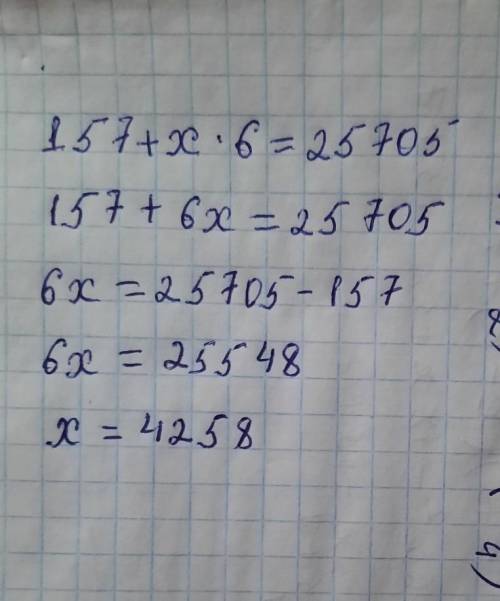 157+x·6=25705
157+6x=25705
6x=25705-157
6x=25548
x=4258